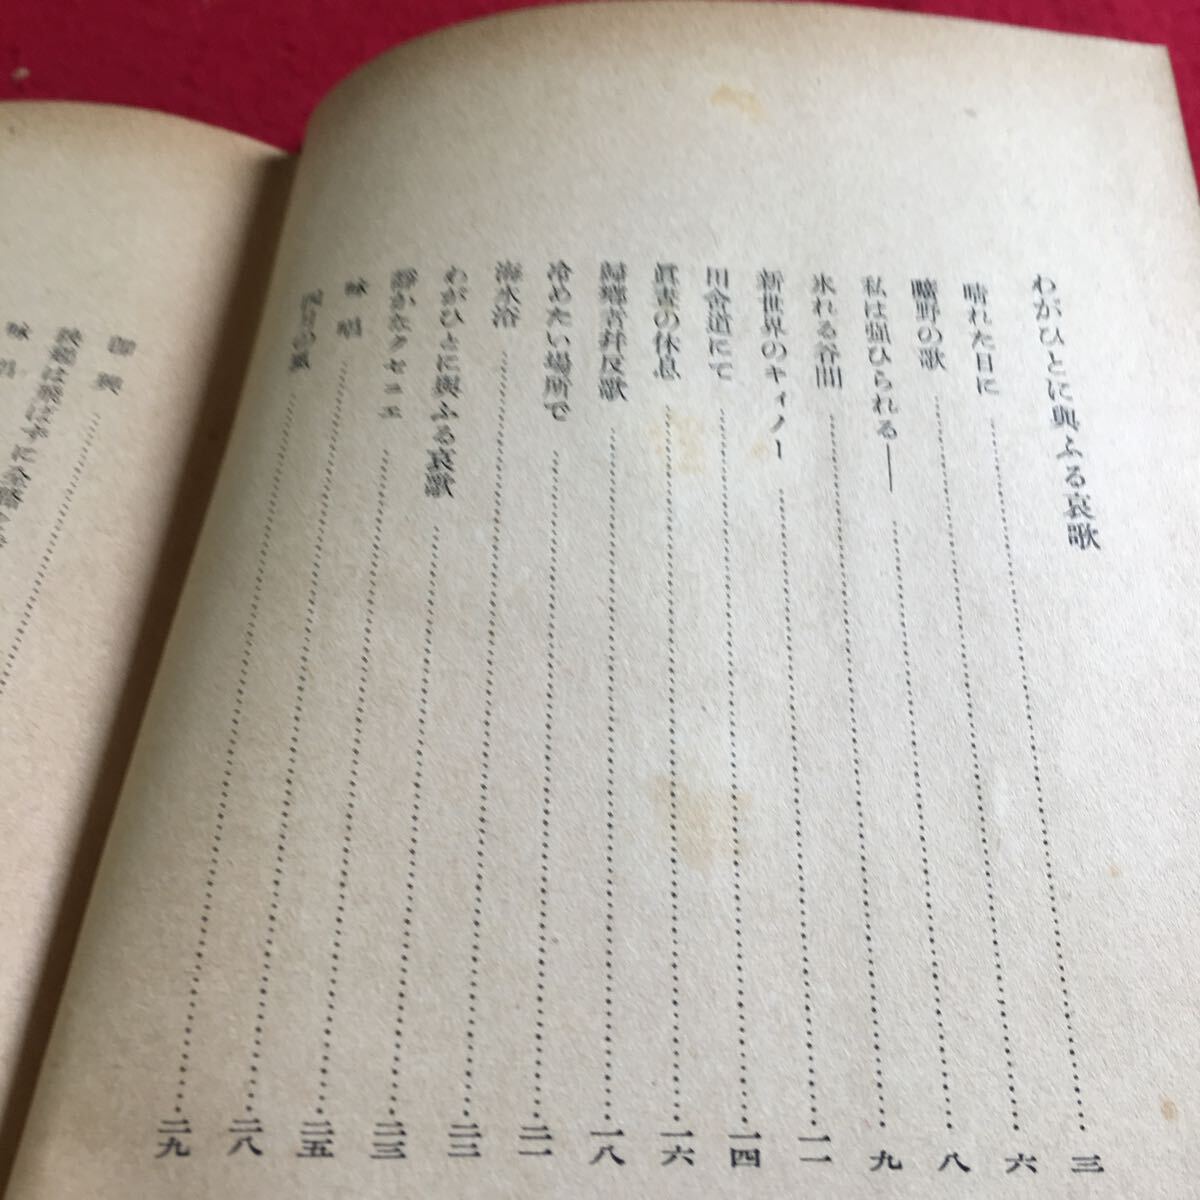 わがひとに與ふる哀歌
晴れた日に……三
曠野の歌……六
私は强ひられる——……八
氷れる谷間……九
新世界のキィノー……一一
田舍道にて……一四
眞晝の休息……一六
歸鄕者幷反歌……一八
冷めたい場所で……二一
海水浴……二二
わがひとに與ふる哀歌……二三
靜かなクセニエ……二五
咏唱……二八
四月の風……二九
卽興……
秧鷄は飛ばずに全路を
咏唱